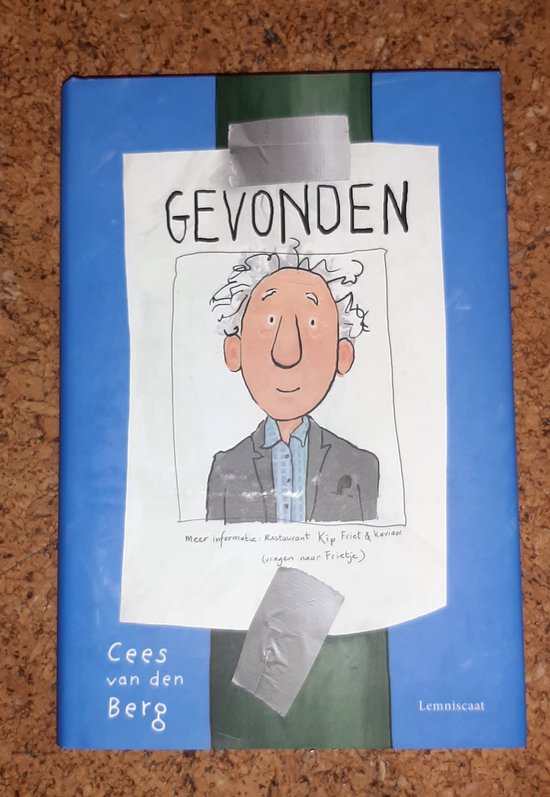 GEVONDEN
Meer informatie: Restaurant Kip Friet & kaviaar
(vragen naar Frietje)
Cees
van den
Berg
Lemniscaat